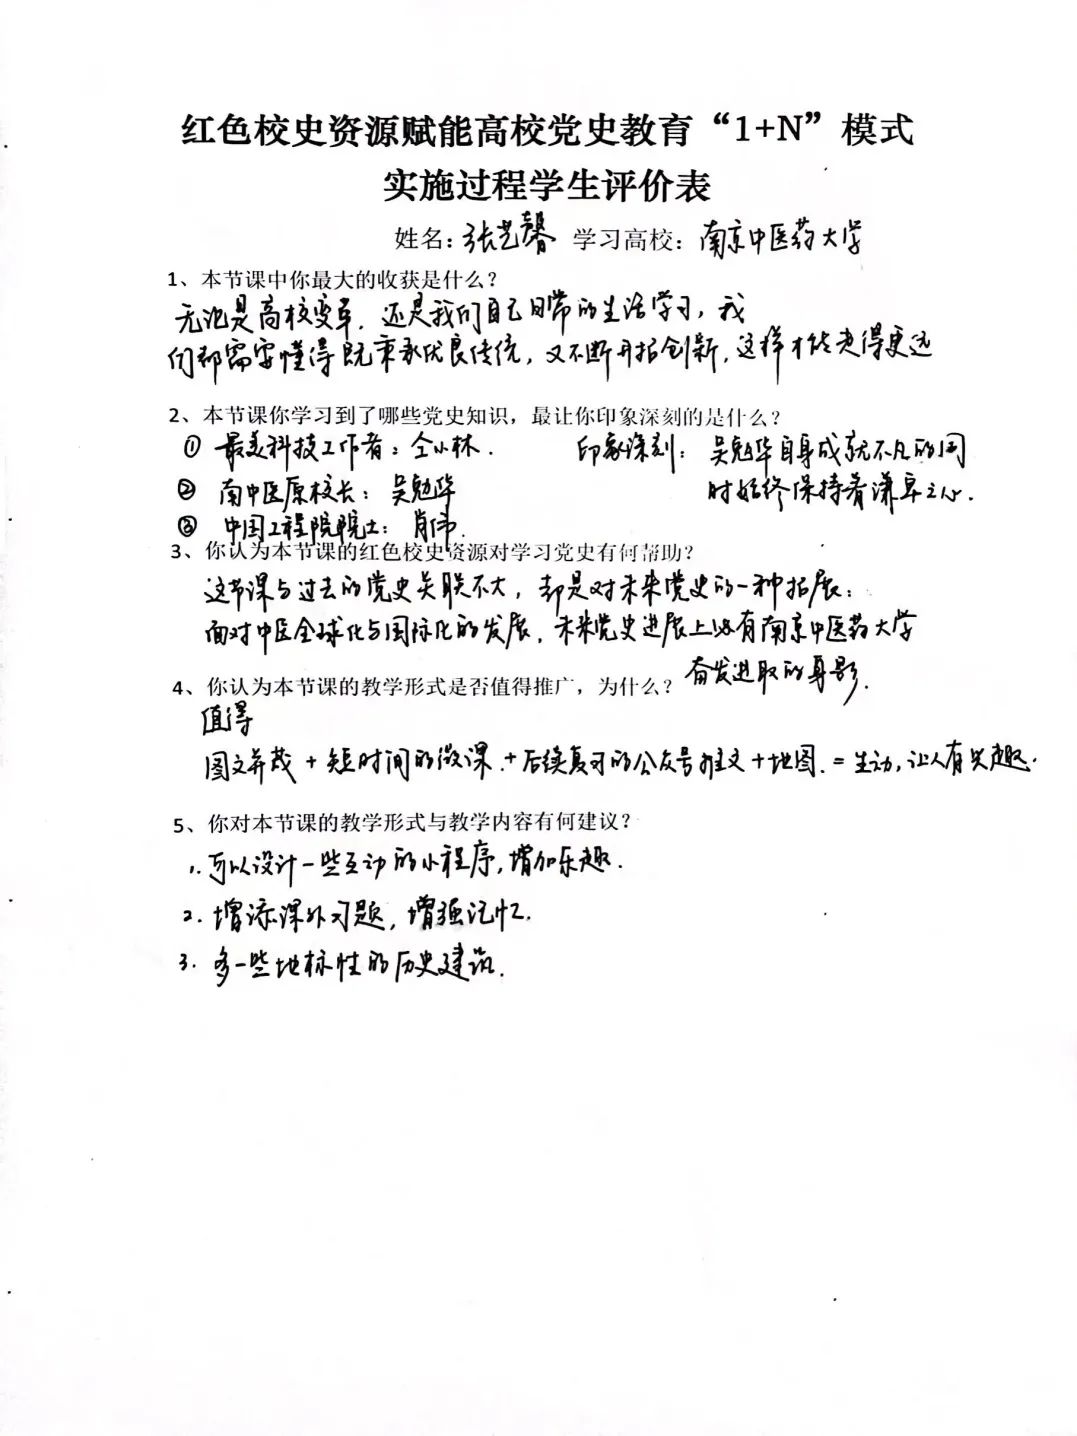 红色校史资源赋能高校党史教育“1+N”模式
实施过程学生评价表
姓名：张艺馨 学习高校：南京中医药大学
1、本节课中你最大的收获是什么？
无论是高校变革，还是我们自己日常的生活学习，我
们都需要懂得既秉承优良传统，又不断开拓创新，这样才能走得更远
2、本节课你学习到了哪些党史知识，最让你印象深刻的是什么？
① 最美科技工作者：仝小林． 印象深刻：吴勉华自身成就不凡的同
② 南中医原校长：吴勉华 时始终保持着谦卑之心．
③ 中国工程院院士：肖伟
3、你认为本节课的红色校史资源对学习党史有何帮助？
这节课与过去的党史关联不大，却是对未来党史的一种拓展：
面对中医全球化与国际化的发展，未来党史进展上必有南京中医药大学
奋发进取的身影．
4、你认为本节课的教学形式是否值得推广，为什么？
值得
图文并茂＋短时间的微课．＋后续复习的公众号推文＋地图．＝生动，让人有兴趣．
5、你对本节课的教学形式与教学内容有何建议？
1．可以设计一些互动的小程序，增加乐趣．
2．增添课外习题，增强记忆．
3．多一些地标性的历史建筑．